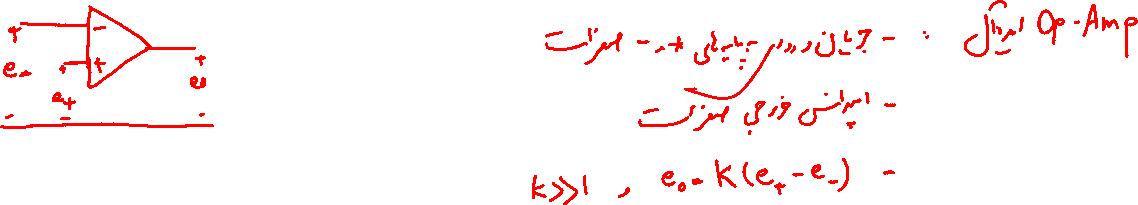 Op-Amp ایده‌آل :
- جریان ورودی پایه‌های + و - صفر است
- امپدانس خروجی صفر است
- e₀ = K(e₊ - e₋) , K≫1
- +
+ e₋ -
+ e₊ -
+ e₀ -